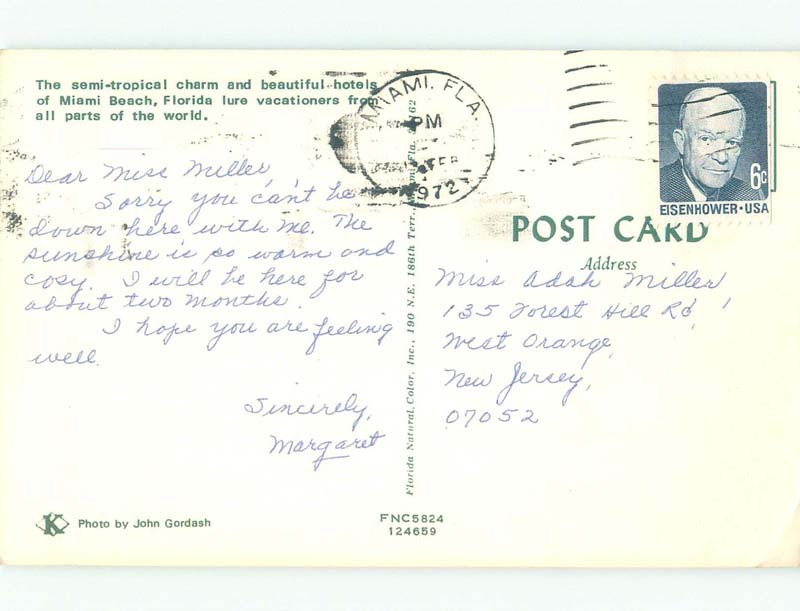 The semi-tropical charm and beautiful hotels
of Miami Beach, Florida lure vacationers from
all parts of the world.
MIAMI, FLA.
PM
FEB
1972
6c
EISENHOWER·USA
POST CARD
Address
Dear Miss Miller,
Sorry you can't be
down here with me. The
sunshine is so warm and
cosy. I will be here for
about two months.
I hope you are feeling
well.
Sincerely,
Margaret
Miss Adah Miller
135 Forest Hill Rd,
West Orange,
New Jersey,
07052
Florida Natural Color, Inc., 190 N.E. 186th Terr., Miami, Fla. 62
K
Photo by John Gordash
FNC5824
124659